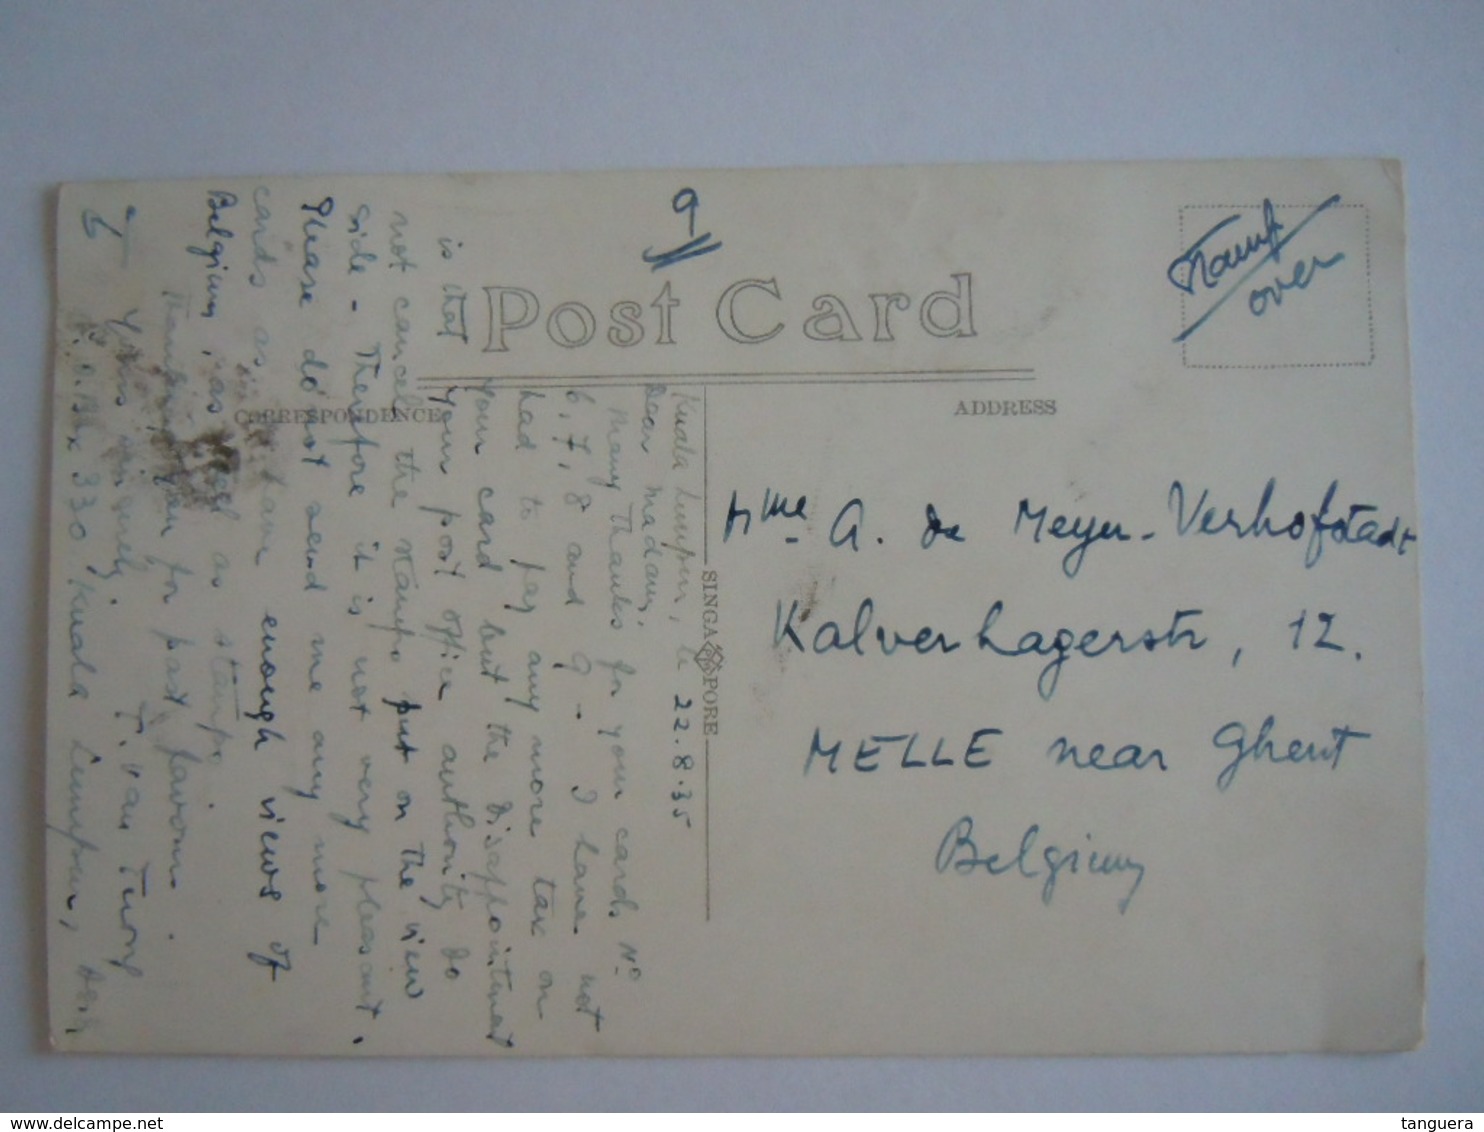 Post Card
CORRESPONDENCE
ADDRESS
SINGAPORE
Stamp
over
Kuala Lumpur, le 22.8.35
Dear Madam,
Many thanks for your cards No
6, 7, 8 and 9 - I have not
had to pay any more tax on
your card but the disappointment
is that your post office authority do
not cancel the stamps put on the view
side - Therefore it is not very pleasant.
Please do not send me any more
cards as I have enough views of
Belgium, as well as stamps.
Thanking you for past favours.
Yours sincerely.
P.O. Box 330 Kuala Lumpur,
Mme A. de Meyer-Verhofstadt
Kalverhagerstr, 12.
MELLE near Ghent
Belgium
tanguera